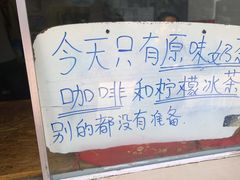 今天只有原味奶
咖啡和柠檬冰茶
别的都没有准备